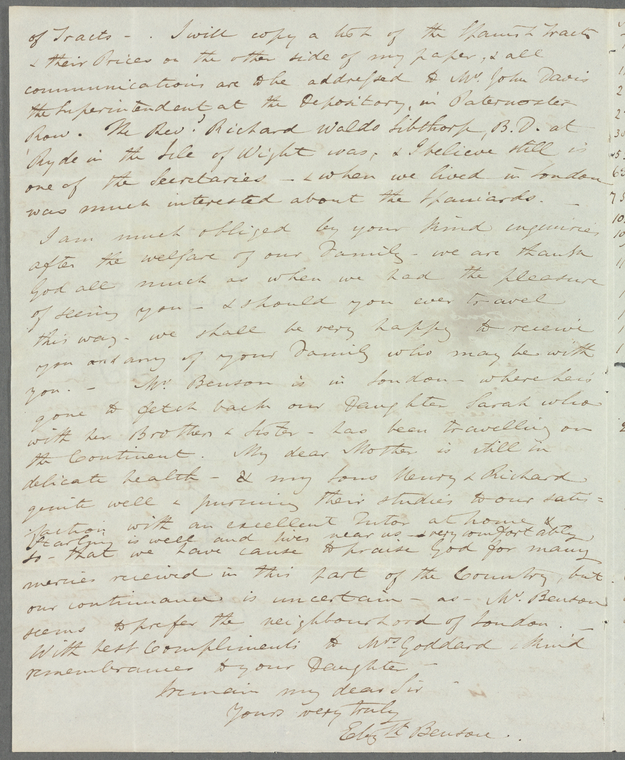 of Tracts - . I will copy a list of the Spanish Tracts
& their Prices on the other side of my paper, & all
communications are to be addressed to Mr. John Davis
the Superintendent at the Depository, in Paternoster
Row. The Revd. Richard Waldo Sibthorp, B.D. at
Ryde in the Isle of Wight was, & I believe still is
one of the Secretaries - & when we lived in London
was much interested about the Spaniards. -
I am much obliged by your kind inquiries
after the welfare of our Family - we are thank
God all much as when we had the pleasure
of seeing you - & should you ever travel
this way - we shall be very happy to receive
you and any of your Family who may be with
you. - Mr Benson is in London - where he is
gone to fetch back our Daughter Sarah who
with her Brothers & Sister - has been travelling on
the Continent. My dear Mother is still in
delicate health - & my Sons Henry & Richard
quite well & pursuing their studies to our satis=
faction with an excellent Tutor at home &
is well and lives near us very comfortably
so - that we have cause to praise God for many
mercies received in this part of the Country, but
our continuance is uncertain - as - Mr. Benson
seems to prefer the neighbourhood of London.
With best Compliments to Mrs Goddard & kind
remembrances to your Daughter
I remain my dear Sir
Yours very truly
Elizth Benson..